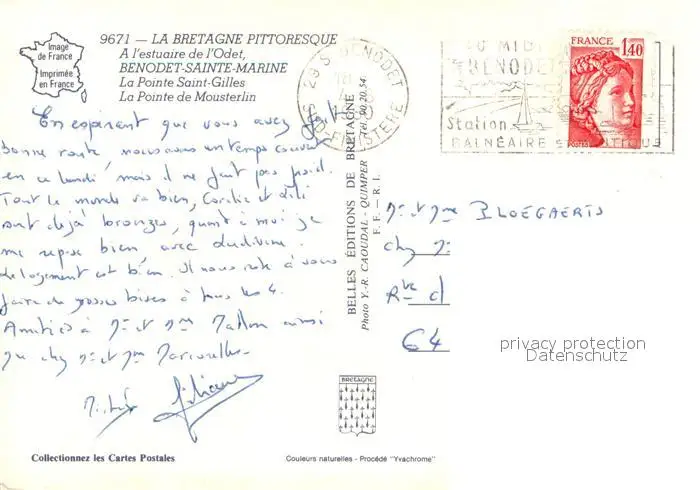 Image
de France
Imprimée
en France
9671 — LA BRETAGNE PITTORESQUE
A l'estuaire de l'Odet,
BENODET-SAINTE-MARINE
La Pointe Saint-Gilles
La Pointe de Mousterlin
En espérant que vous avez fait
bonne route, nous avons un temps couvert
en ce lundi mais il ne fait pas froid.
Tout le monde va bien, Coralie et
sont déjà bronzés, quant à moi je
me repose bien, avec
le logement est bien. Il nous reste à vous
faire de grosses bises à tous les 4.
Amitiés à Mr et Mme ainsi
que chez Mr et Mme
BELLES ÉDITIONS DE BRETAGNE
Photo Y.-R. CAOUDAL - QUIMPER Tél. 90.20.54
F. F. - R. L.
BENODET
FINISTERE
BENODET
Station
BALNÉAIRE
FRANCE
1,40
POSTES
Mr et Mme PLOEGAERTS
chez Mr
Rue d
64
privacy protection
Datenschutz
BRETAGNE
Collectionnez les Cartes Postales
Couleurs naturelles - Procédé "Yvachrome"